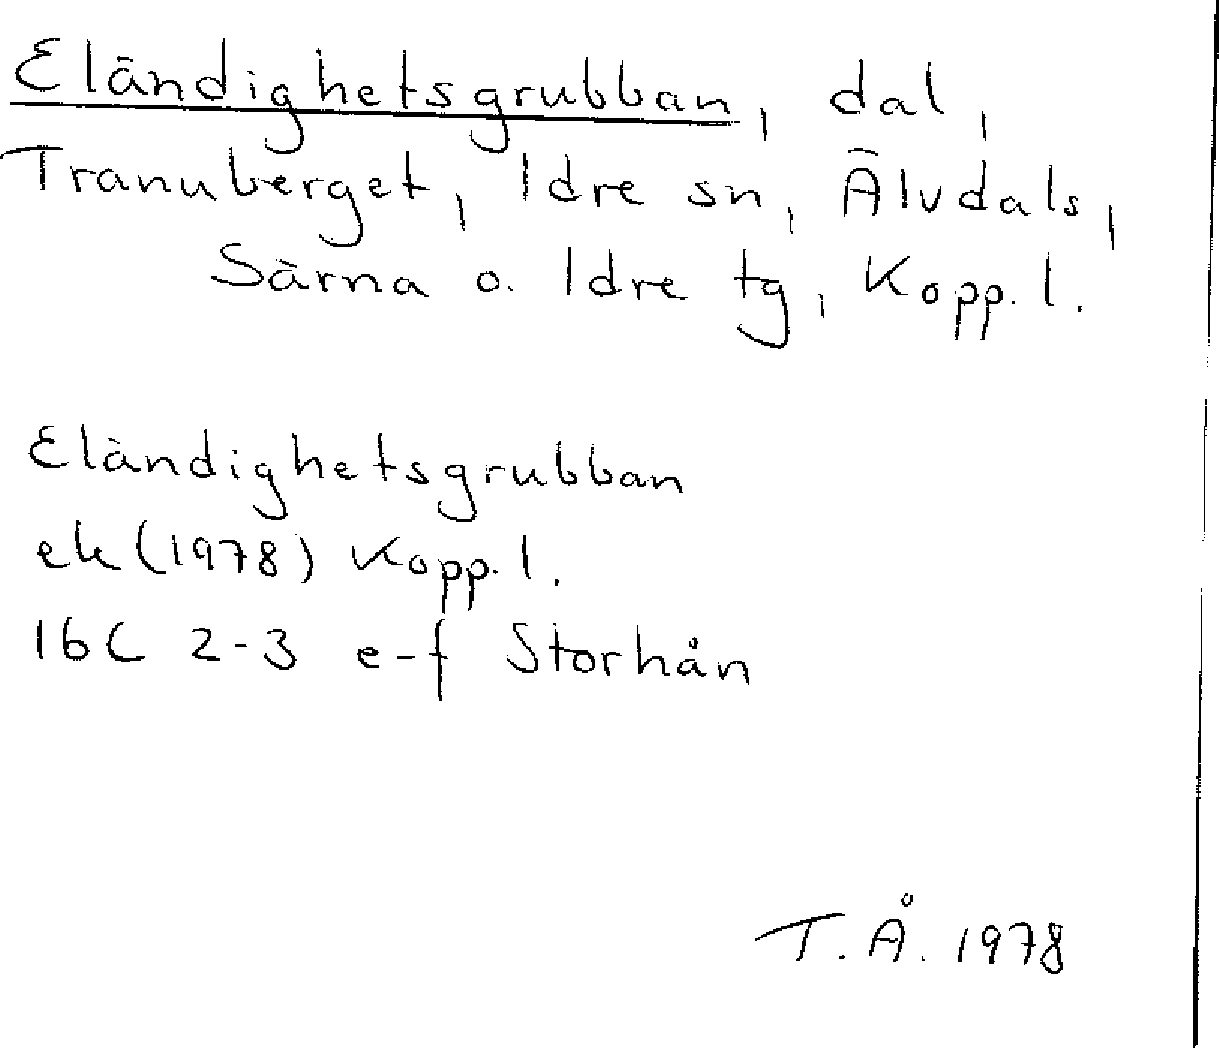 Eländighetsgrubban, dal,
Tranuberget, Idre sn, Älvdals,
Särna o. Idre tg, Kopp. l.
Eländighetsgrubban
ek (1978) Kopp. l.
16C 2-3 e-f Storhån
T. Å. 1978